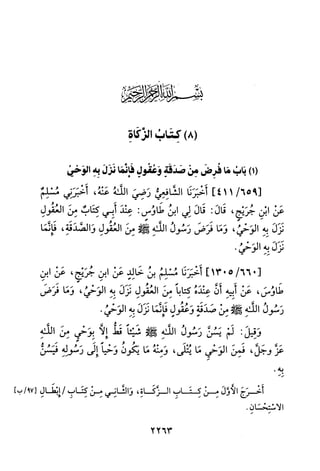 بسم الله الرحمن الرحيم
(٨) كِتَابُ الزَّكَاةِ
(١) بَابُ مَا فُرِضَ مِنْ صَدَقَةٍ وَعُقُولٍ فَإِنَّمَا نَزَلَ بِهِ الوَحْيُ
[٤١١/٦٥٩] أَخْبَرَنَا الشَّافِعِيُّ رَضِيَ اللَّهُ عَنْهُ، أَخْبَرَنِي مُسْلِمٌ
عَنْ ابْنِ جُرَيْجٍ، قَالَ: قَالَ لِي ابْنُ طَاوُسٍ: عِنْدَ أَبِي كِتَابٌ مِنَ العُقُولِ
نَزَلَ بِهِ الوَحْيُ، وَمَا فَرَضَ رَسُولُ اللَّهِ ﷺ مِنَ العُقُولِ وَالصَّدَقَةِ، فَإِنَّمَا
نَزَلَ بِهِ الوَحْيُ.
[١٣٠٥/٦٦٠] أَخْبَرَنَا مُسْلِمُ بنُ خَالِدٍ عَنْ ابنِ جُرَيْجٍ، عَنْ ابنِ
طَاوُسٍ، عَنْ أَبِيهِ أَنَّ عِنْدَهُ كِتَاباً مِنَ العُقُولِ نَزَلَ بِهِ الوَحْيُ، وَمَا فَرَضَ
رَسُولُ اللَّهِ ﷺ مِنْ صَدَقَةٍ وَعُقُولٍ فَإِنَّمَا نَزَلَ بِهِ الوَحْيُ.
وَقِيلَ: لَمْ يَسُنَّ رَسُولُ اللَّهِ ﷺ شَيْئاً قَطُّ إِلَّا بِوَحْيٍ مِنَ اللَّهِ
عَزَّ وجَلَّ، فَمِنَ الوَحْيِ مَا يُتْلَى، وَمِنْهُ مَا يَكُونُ وَحْياً إِلَى رَسُولِهِ فَيَسُنُّ
بِهِ.
أخـرج الأوَّل مـن كـتـاب الـزكـاة، والثـانـي مـن كتـاب/ إبْطَـال [٩٧/ب]
الاستحْسَان.
٢٢٦٣